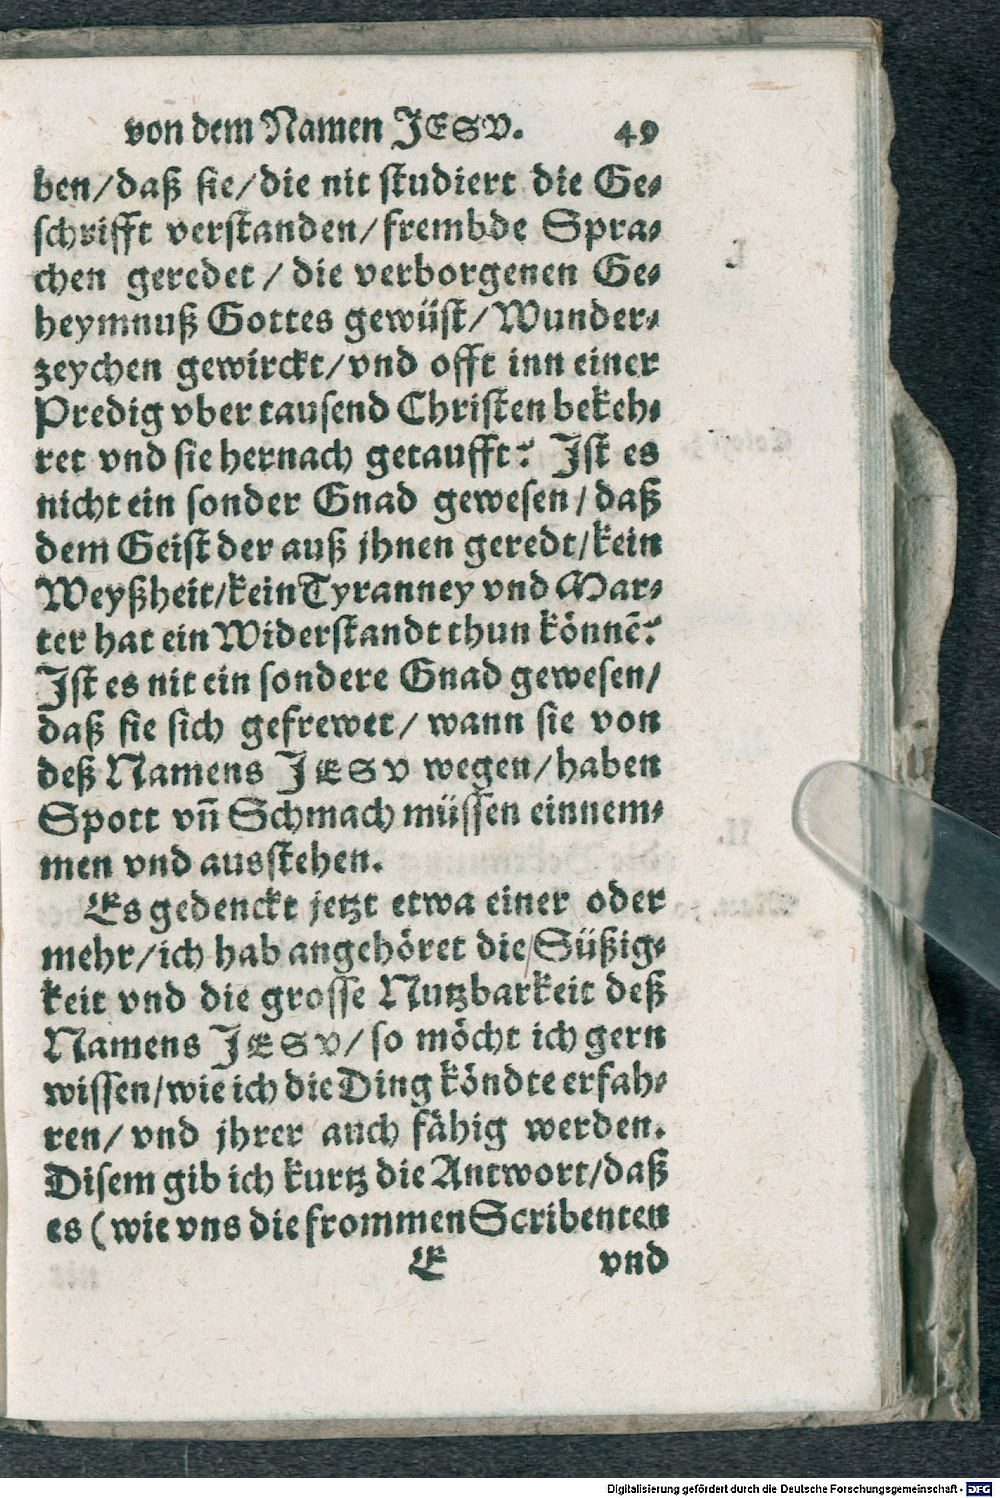 von dem Namen JESV. 49
ben/daß sie/die nit studiert die Ge⸗
schrifft verstanden/frembde Spra⸗
chen geredet/die verborgenen Ge⸗
heymnuß Gottes gewüst/Wunder⸗
zeychen gewirckt/vnd offt inn einer
Predig vber tausend Christen bekeh⸗
ret vnd sie hernach getaufft? Ist es
nicht ein sonder Gnad gewesen/daß
dem Geist der auß jhnen geredt/kein
Weyßheit/kein Tyranney vnd Mar⸗
ter hat ein Widerstandt thun könnē?
Ist es nit ein sondere Gnad gewesen/
daß sie sich gefrewet/wann sie von
deß Namens JESV wegen/haben
Spott vñ Schmach müssen einnem⸗
men vnd ausstehen.
Es gedenckt jetzt etwa einer oder
mehr/ich hab angehöret die Süßig⸗
keit vnd die grosse Nutzbarkeit deß
Namens JESV/so möcht ich gern
wissen/wie ich die Ding köndte erfah⸗
ren/vnd jhrer auch fähig werden.
Disem gib ich kurtz die Antwort/daß
es (wie vns die frommen Scribenten
E vnd
Digitalisierung gefördert durch die Deutsche Forschungsgemeinschaft - DFG